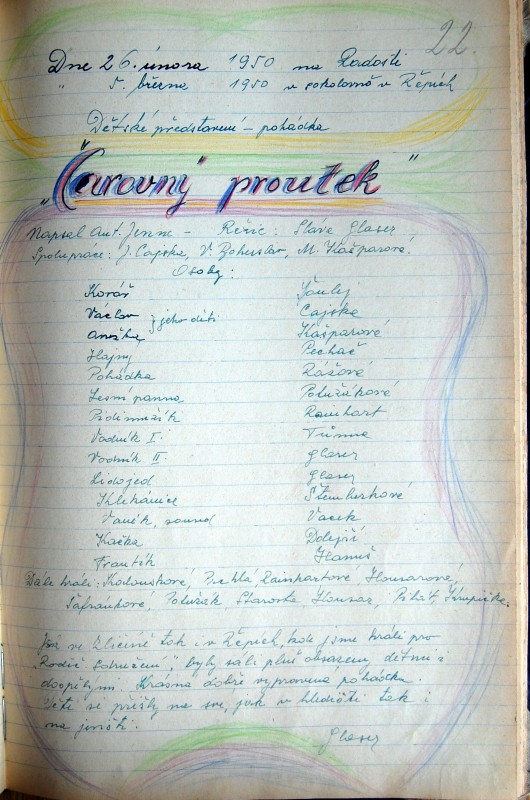 22.
Dne 26. února 1950 na Radosti
" 5. března 1950 v sokolovně v Řepích
Dětské představení – pohádka
"Čarovný proutek"
Napsal Ant. Jenne – Režie: Sláva Glaser
Spolupráce: J. Cajska, V. Bohuslav, M. Kašparová.
Osoby:
Kovář
Václav } jeho děti Cajska
Anežka Kašparová
Hajný Pechač
Pohádka
Lesní panna Polužáková
Pidimužík Rainhart
Vodník I. Tůma
Vodník II. Glaser
Lidojed Glaser
Klekánice Štemberková
Vaněk, soused Vacek
Kačka Dolejší
Frantík Hanuš
Dále hráli: Prchlá, Rainhartová, Housarová,
Šafránková, Polužák, Starosta, Housar, Krupička.
Jak ve Zličíně tak i v Řepích, kde jsme hráli pro
"Rodič. sdružení" byly sály plně obsazeny dětmi i
dospělými. Krásná dobře vypravena pohádka.
Děti si přišly na své, jak v hledišti tak i
na jevišti.
Glaser